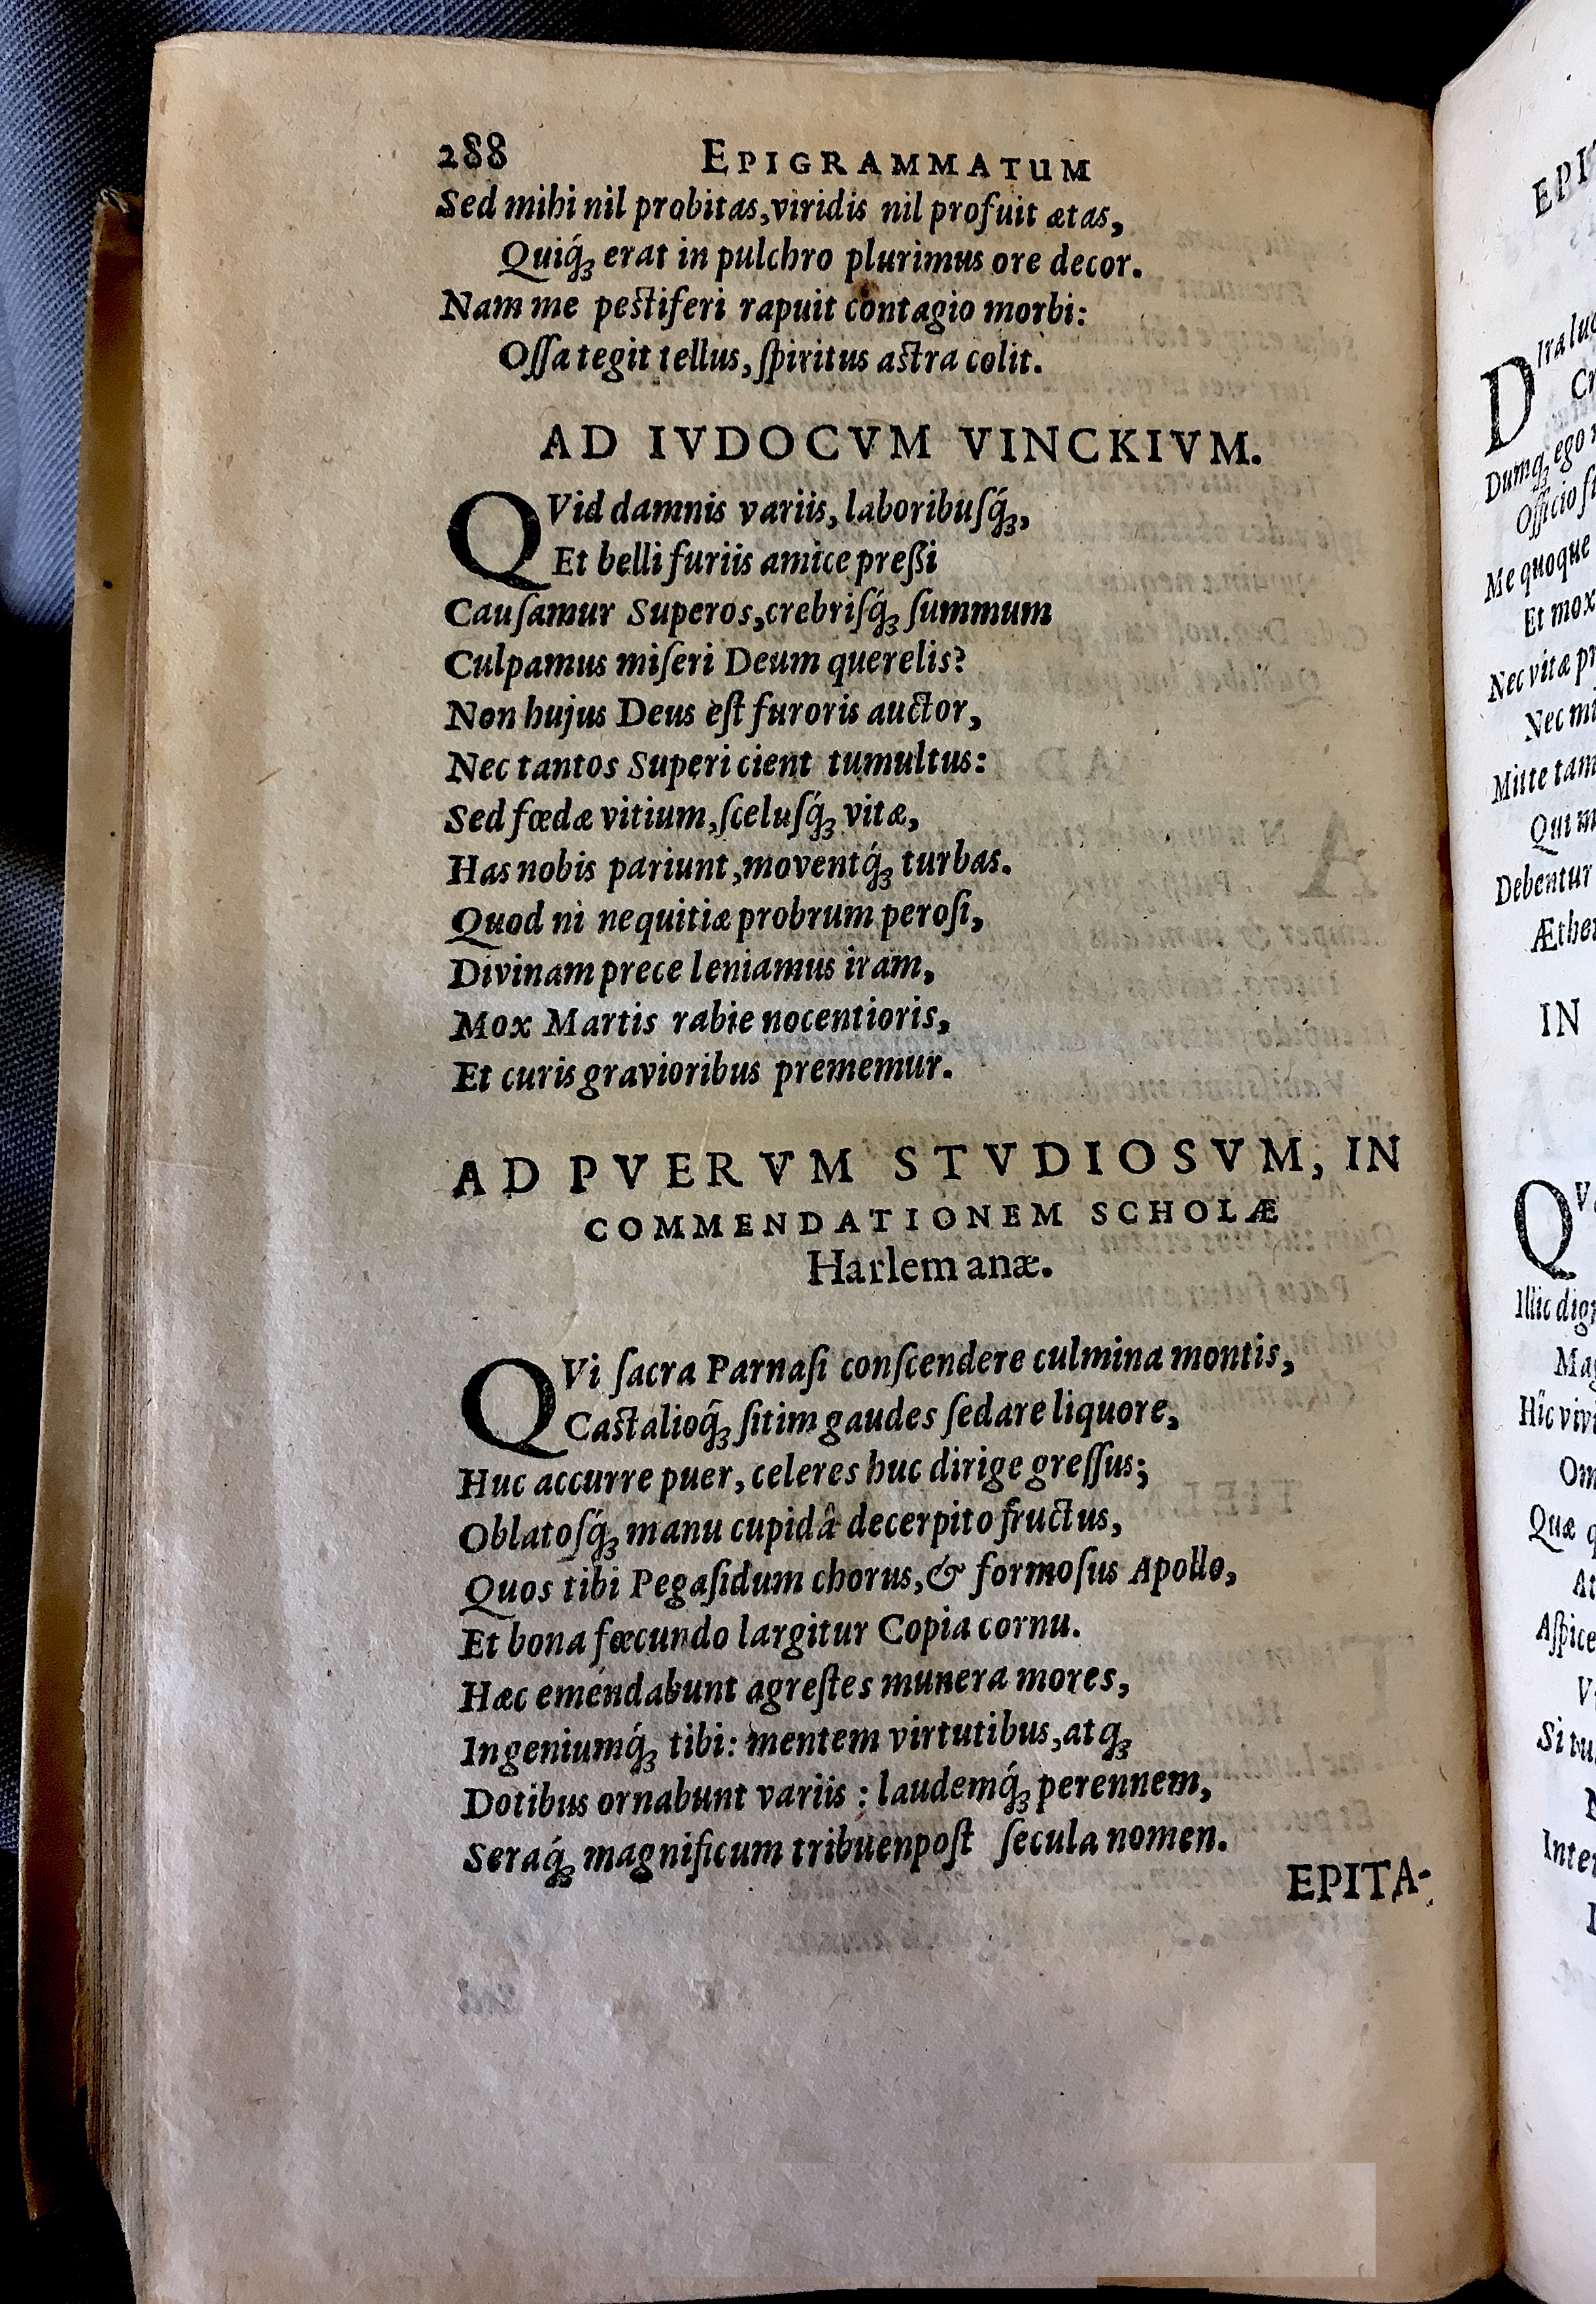 288 EPIGRAMMATUM
Sed mihi nil probitas, viridis nil profuit ætas,
Quiq́ꝫ erat in pulchro plurimus ore decor.
Nam me peſtiferi rapuit contagio morbi:
Oſſa tegit tellus, ſpiritus aſtra colit.
AD IVDOCVM VINCKIVM.
QVid damnis variis, laboribuſq́ꝫ,
Et belli furiis amice preßi
Cauſamur Superos, crebriſq́ꝫ ſummum
Culpamus miſeri Deum querelis?
Non hujus Deus eſt furoris auctor,
Nec tantos Superi cient tumultus:
Sed fœdæ vitium, ſceluſq́ꝫ vitæ,
Has nobis pariunt, moventq́ꝫ turbas.
Quod ni nequitiæ probrum peroſi,
Divinam prece leniamus iram,
Mox Martis rabie nocentioris,
Et curis gravioribus prememur.
AD PVERVM STVDIOSVM, IN
COMMENDATIONEM SCHOLÆ
Harlemanæ.
QVi ſacra Parnaſi conſcendere culmina montis,
Caſtalioq́ꝫ ſitim gaudes ſedare liquore,
Huc accurre puer, celeres huc dirige greſſus;
Oblatoſq́ꝫ manu cupidâ decerpito fructus,
Quos tibi Pegaſidum chorus, & formoſus Apollo,
Et bona fœcundo largitur Copia cornu.
Hæc emendabunt agreſtes munera mores,
Ingeniumq́ꝫ tibi: mentem virtutibus, atqꝫ
Dotibus ornabunt variis : laudemq́ꝫ perennem,
Seraq́ꝫ magnificum tribuenpoſt ſecula nomen.
EPITA-